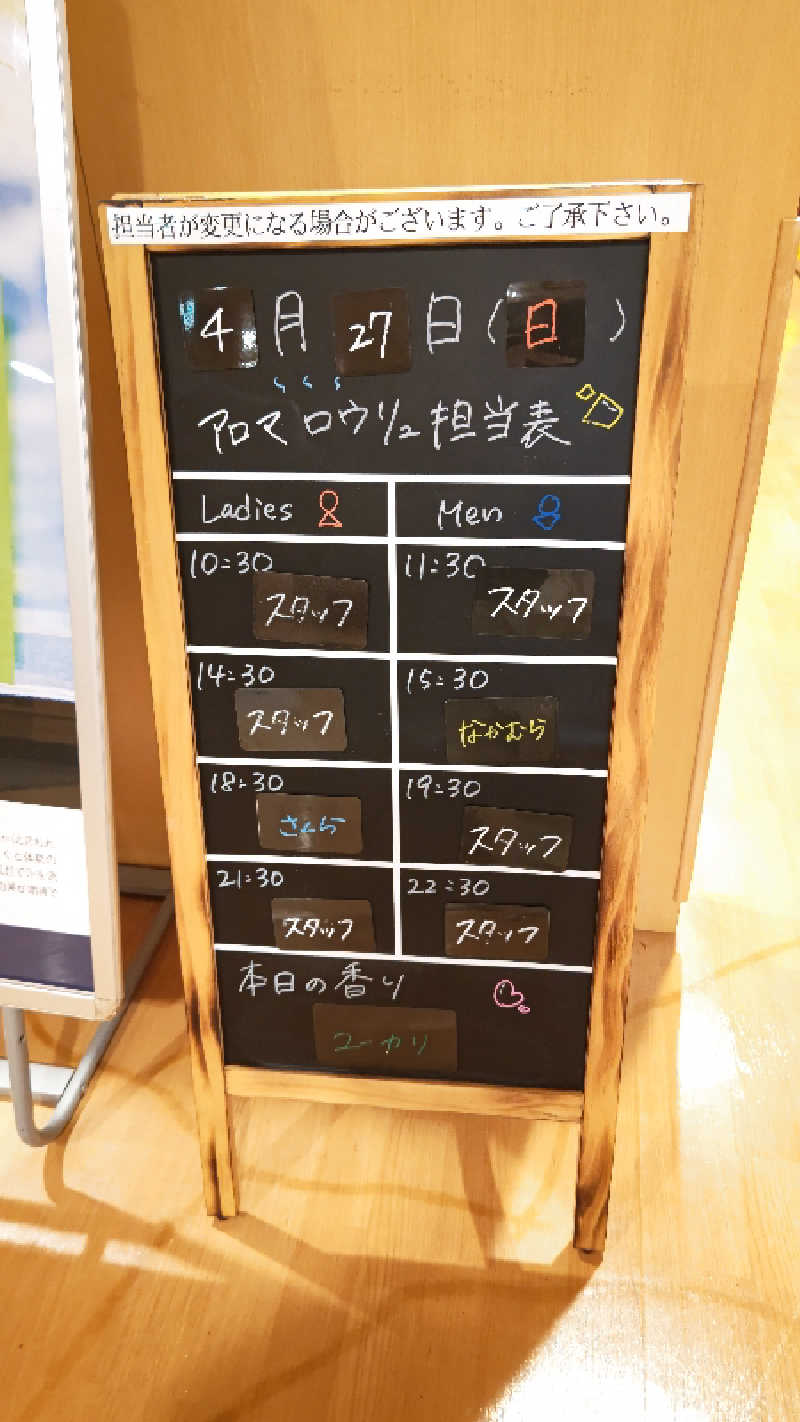 担当者が変更になる場合がございます。ご了承下さい。
4月27日(日)
アロマロウリュ担当表
Ladies Men
10:30 11:30
スタッフ スタッフ
14:30 15:30
スタッフ なかむら
18:30 19:30
さくら スタッフ
21:30 22:30
スタッフ スタッフ
本日の香り
ユーカリ